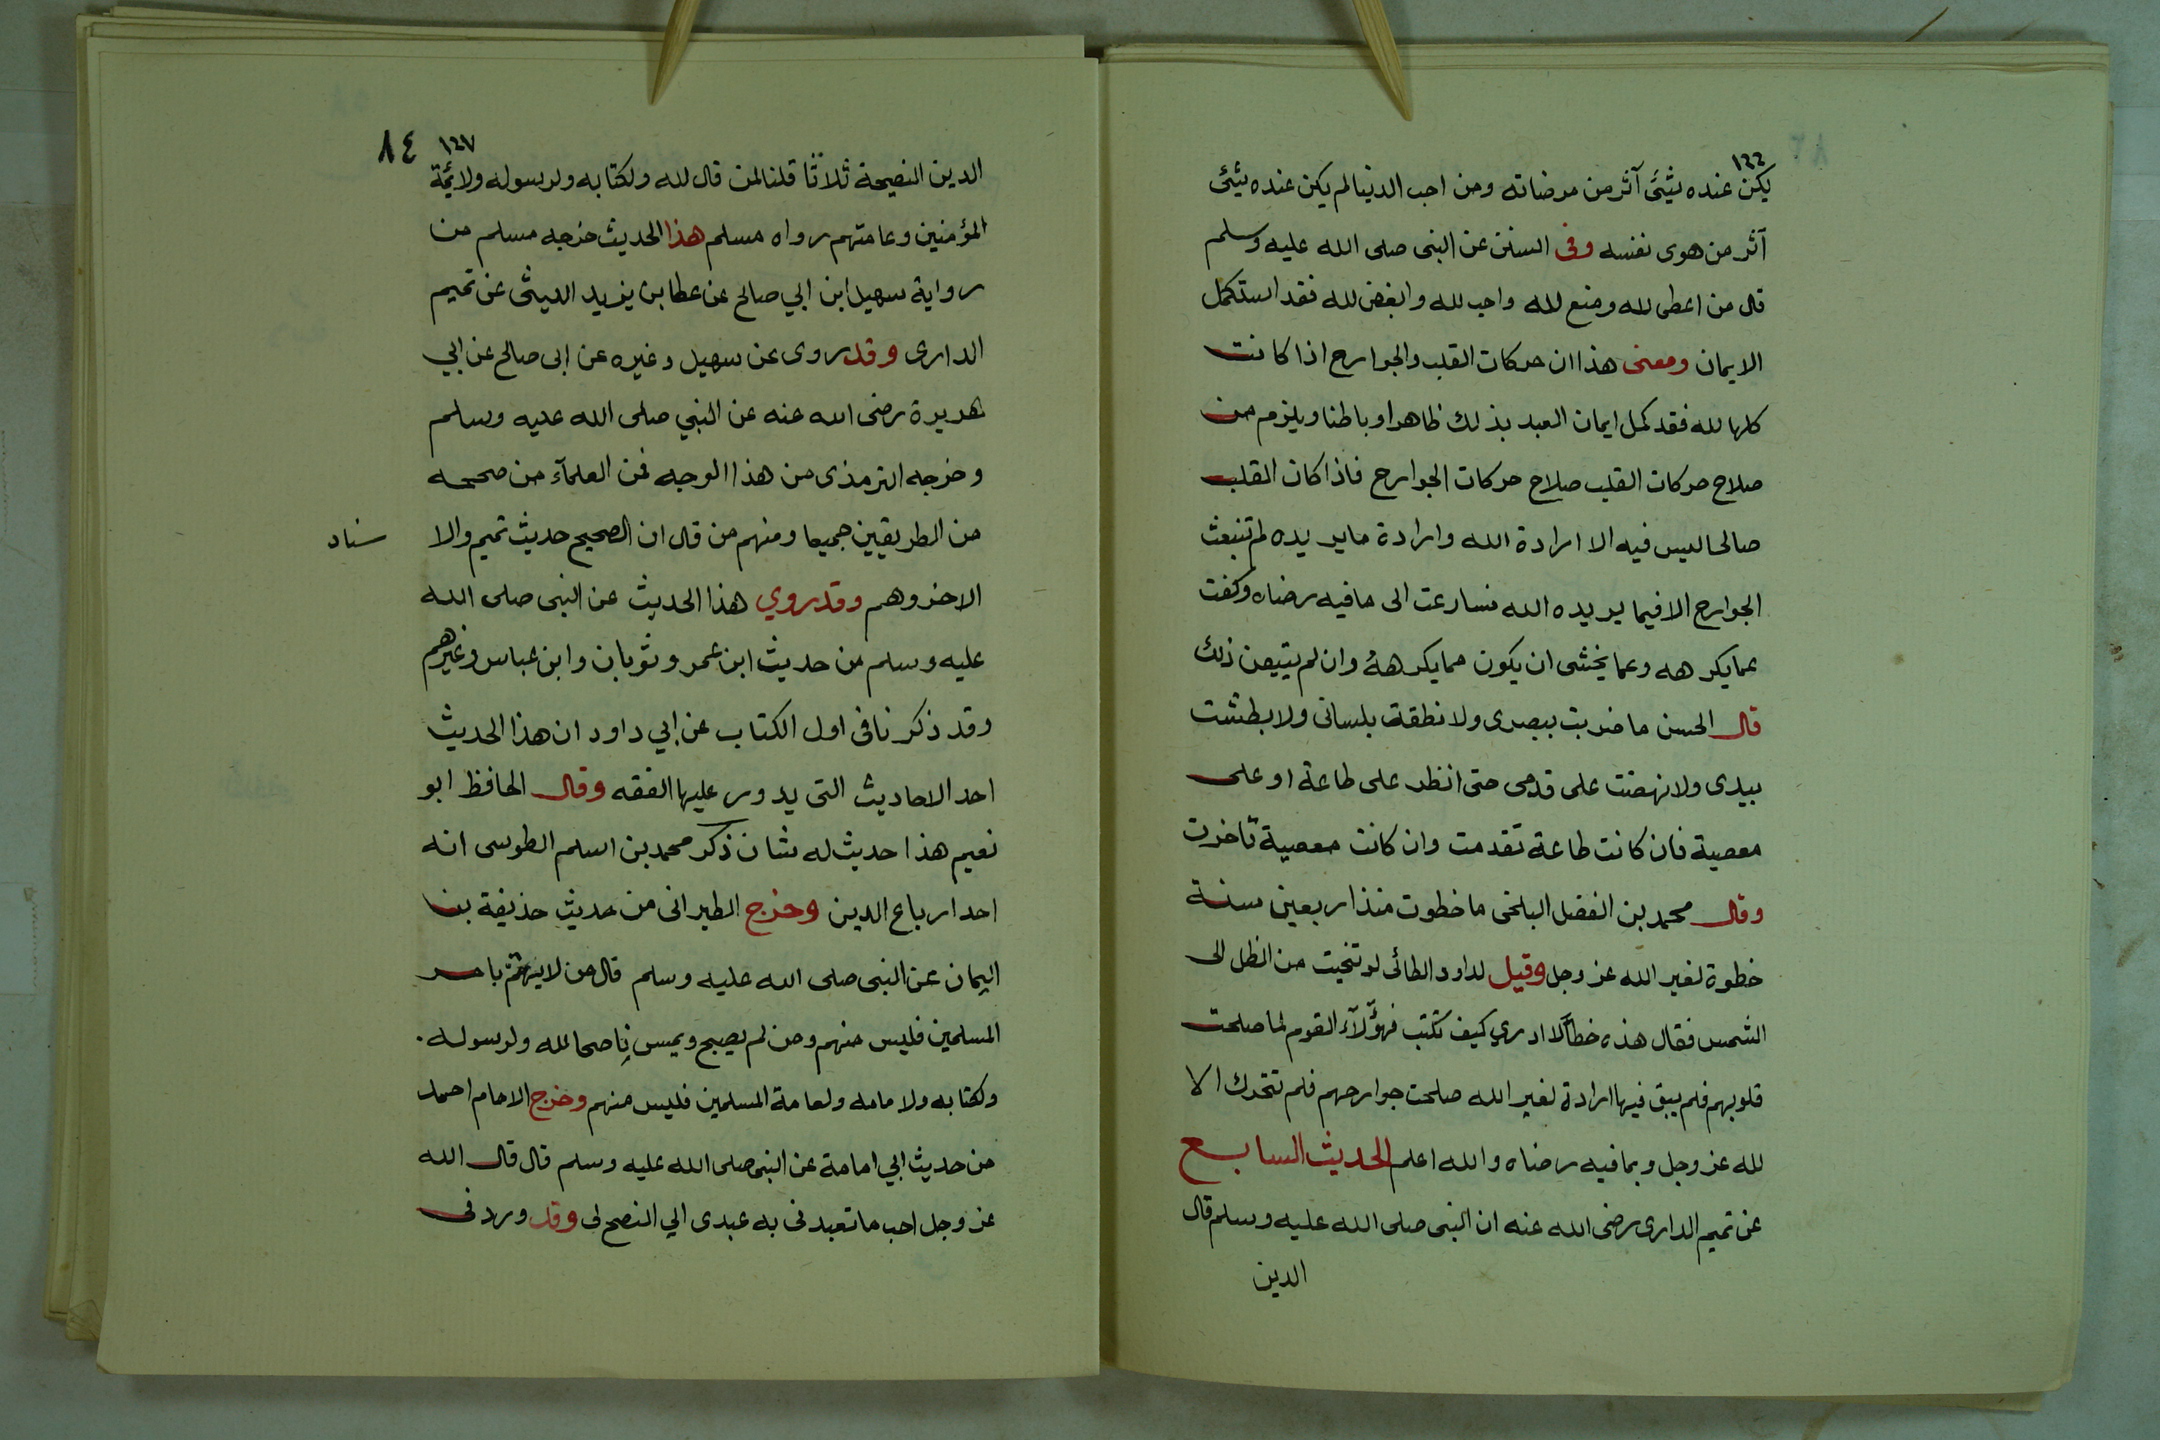 ١٦٦
يكن عنده شئ آثر من مرضاته ومن احب الدنيا لم يكن عنده شئ
آثر من هوى نفسه وفى السنن عن النبى صلى الله عليه وسلم
قال من اعطى لله ومنع لله واحب لله وابغض لله فقد استكمل
الايمان ومعنى هذا ان حركات القلب والجوارح اذا كانت
كلها لله فقد كمل ايمان العبد بذلك ظاهرا وباطنا ويلزم من
صلاح حركات القلب صلاح حركات الجوارح فاذا كان القلب
صالحا ليس فيه الا ارادة الله وارادة ما يريده لم تنبعث
الجوارح الا فيما يريده الله فسارعت الى ما فيه رضاه وكفت
عما يكرهه وعما يخشى ان يكون مما يكرهه وان لم يتيقن ذلك
قال الحسن ما ضربت ببصرى ولا نطقة بلسانى ولا بطشت
بيدى ولا نهضت على قدمى حتى انظر على طاعة او على
معصية فان كانت طاعة تقدمت وان كانت معصية تاخرت
وقال محمد بن الفضل البلخى ما خطوت منذ اربعين سنة
خطوة لغير الله عز وجل وقيل لداود الطائى لو تنحيت من الظل الى
الشمس فقال هذه خطا لا ادري كيف تكتب فهؤلآء القوم لما صلحت
قلوبهم فلم يبق فيها ارادة لغير الله صلحت جوارحهم فلم تتحرك الا
لله عز وجل وبما فيه رضاه والله اعلم الحديث السابع
عن تميم الدارى رضى الله عنه ان النبى صلى الله عليه وسلم قال
الدين
١٦٧
٨٤
الدين النصيحة ثلاثا قلنا لمن قال لله ولكتابه ولرسوله ولائمة
المؤمنين وعامتهم رواه مسلم هذا الحديث خرجه مسلم من
رواية سهيل ابن ابي صالح عن عطا بن يزيد الليثى عن تميم
الدارى وقد روى عن سهيل وغيره عن ابى صالح عن ابي
هريرة رضى الله عنه عن النبي صلى الله عليه وسلم
وخرجه الترمذى من هذا الوجه فمن العلمآء من صححه
من الطريقين جميعا ومنهم من قال ان الصحيح حديث تميم والا
سناد
الاخر وهم وقد روي هذا الحديث عن النبى صلى الله
عليه وسلم من حديث ابن عمر وثوبان وابن عباس وغيرهم
وقد ذكرنا فى اول الكتاب عن ابي داود ان هذا الحديث
احد الاحاديث التى يدور عليها الفقه وقال الحافظ ابو
نعيم هذا حديث له شان ذكر محمد بن اسلم الطوسى انه
احد ارباع الدين وخرج الطبرانى من حديث حذيفة بن
اليمان عن النبى صلى الله عليه وسلم قال من لا يهتم بامر
المسلمين فليس منهم ومن لم يصبح ويمس ناصحا لله ولرسوله
ولكتابه ولامامه ولعامة المسلمين فليس منهم وخرج الامام احمد
من حديث ابي امامة عن النبى صلى الله عليه وسلم قال قال الله
عز وجل احب ما تعبدنى به عبدى الي النصح لى وقد ورد فى